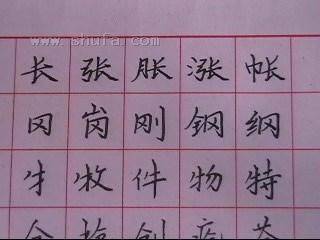 www.shufa.com
长张胀涨帐
冈岗刚钢纲
牛牧件物特